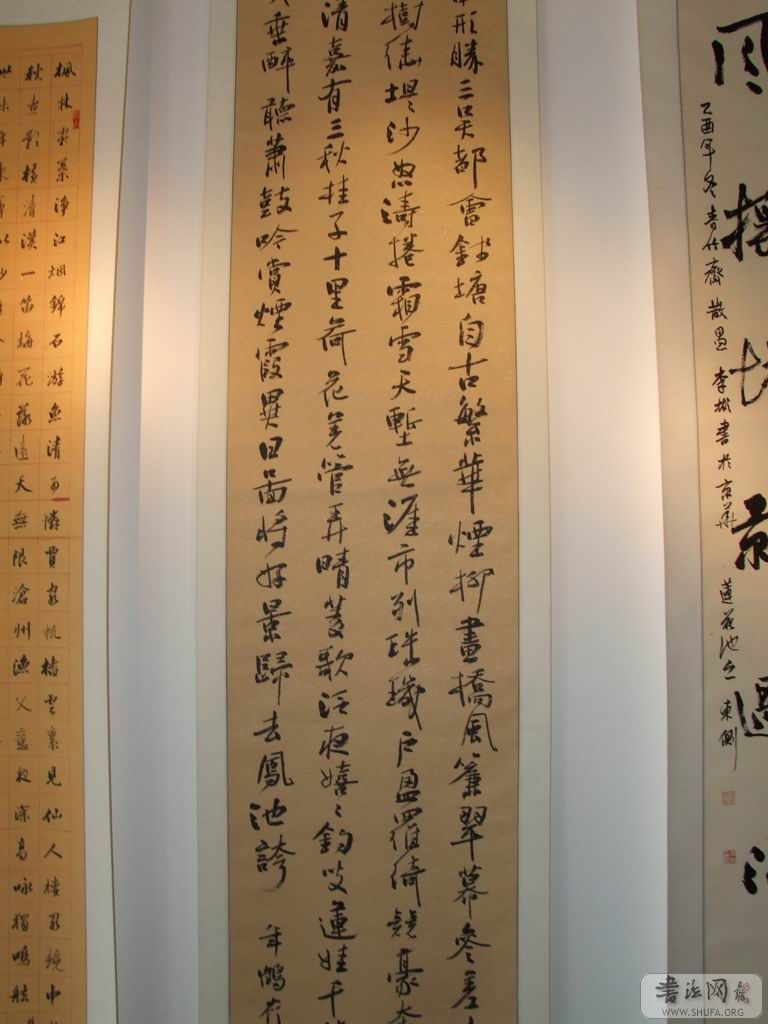 風
景
乙酉年冬青竹齋散愚李彬書於京華 蓮花池 東側
形勝三吳都會錢塘自古繁華煙柳畫橋風簾翠幕參差
樹繞堤沙怒濤捲霜雪天塹無涯市列珠璣戶盈羅綺競豪
清嘉有三秋桂子十里荷花羌管弄晴菱歌泛夜嬉々釣叟蓮娃千
醉聽蕭鼓吟賞煙霞異日圖將好景歸去鳳池誇 年
楓林葉淨江烟錦石游魚清可憐賈客帆檣雲裏見仙人樓閣鏡中
秋查影橫清漢一笛梅花落遠天無限滄州漁父意夜深高咏獨鳴舷
书法网
WWW.SHUFA.ORG